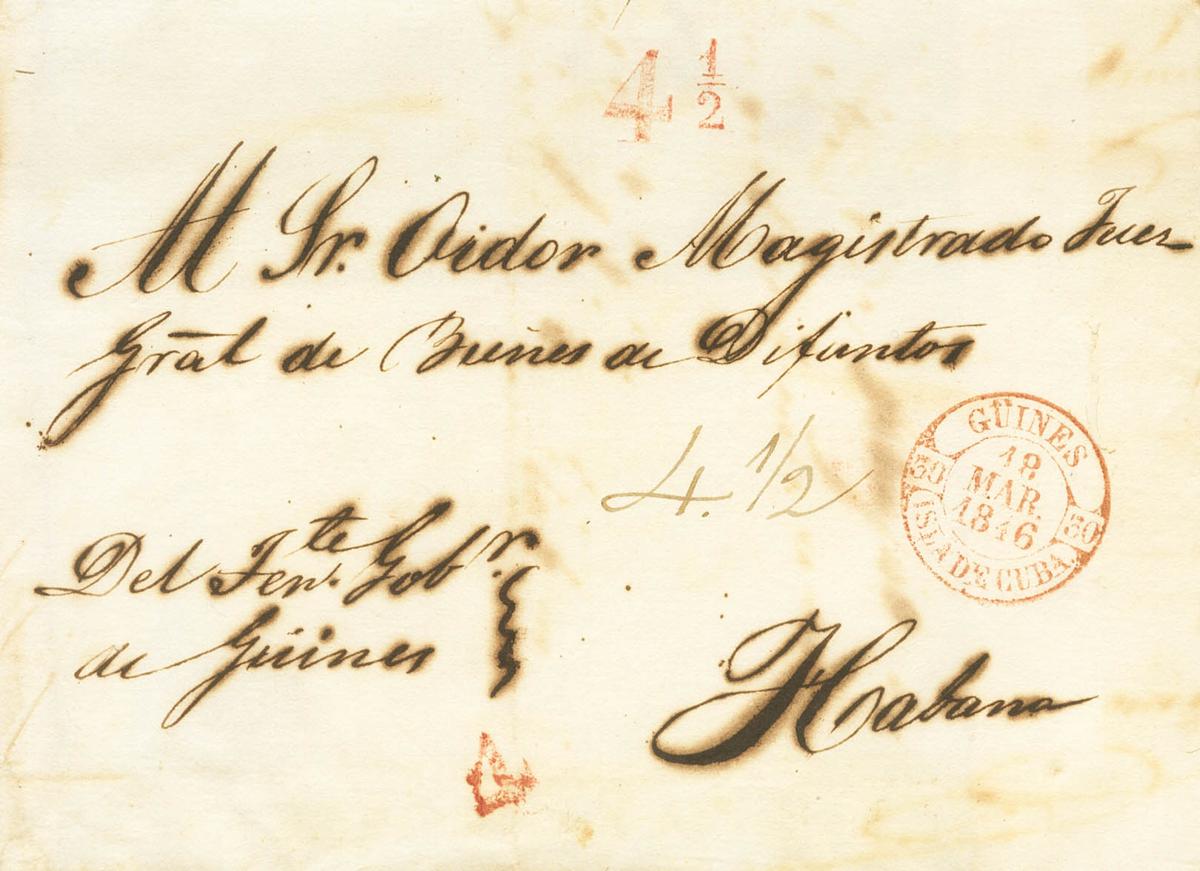 4 1/2
Al Sr. Oidor Magistrado Juez
Grāl de Buenes de Difuntos
4. 1/2
GÜINES.
18
MAR
1846
30 30
ISLA DE CUBA.
Del Tente. Gobr.
de Güines
Habana